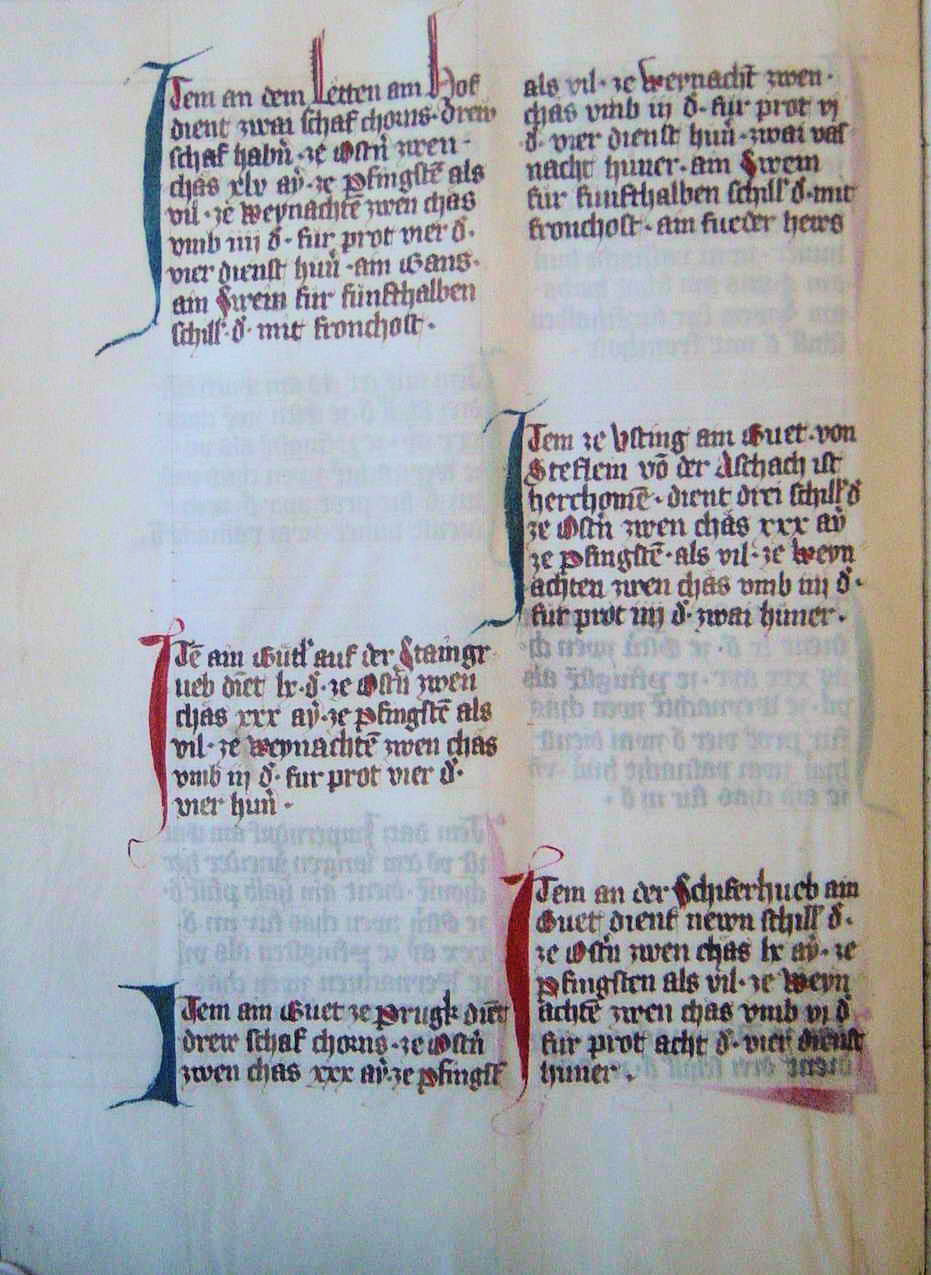 Item an dem Letten am Hof
dient zwai schaf chorns · drew
schaf habn̄ · ze Ostn̄ zwen ·
chas xlv aÿ · ze Pfingstē als
vil · ze Weynachtē zwen chas
vmb iiij ꝺ · fur prot vier ꝺ ·
vier dienst hun̄ · ain Gans ·
ain Swein fur funfthalben
schill · ꝺ · mit fronchost ·
Itē ain Gütl auf der Staingr
ueb diēt lx · ꝺ · ze Ostn̄ zwen
chas xxx aÿ · ze Pfingstē als
vil · ze Weynachtē zwen chas
vmb iij ꝺ · fur prot vier ꝺ ·
vier hun̄ ·
Item ain Guet ze Prugk diēt
drew schaf chorns · ze Ostn̄
zwen chas xxx aÿ · ze Pfingst
als vil · ze Weynacht zwen ·
chas vmb iij ꝺ · fur prot vj
· ꝺ · vier dienst hun̄ · zwai vas
nacht huner · ain Swein
fur funfthalben schill ꝺ · mit
fronchost · ain fueder hews
Item ze Vsting ain Guet · von
Steflein vō der Aschach ist
herchomē · dient drei schill ꝺ
ze Ostn̄ zwen chas xxx aÿ
ze Pfingstē · als vil · ze Weyn
achten zwen chas vmb iiij ꝺ ·
fur prot iiij ꝺ · zwai huner ·
Item an der Schiferhueb ain
Guet dient newn schill ꝺ ·
ze Ostn̄ zwen chas lx aÿ · ze
Pfingsten als vil · ze Weyn
achtē zwen chas vmb vj ꝺ
fur prot acht ꝺ · vier dienst
huner ·